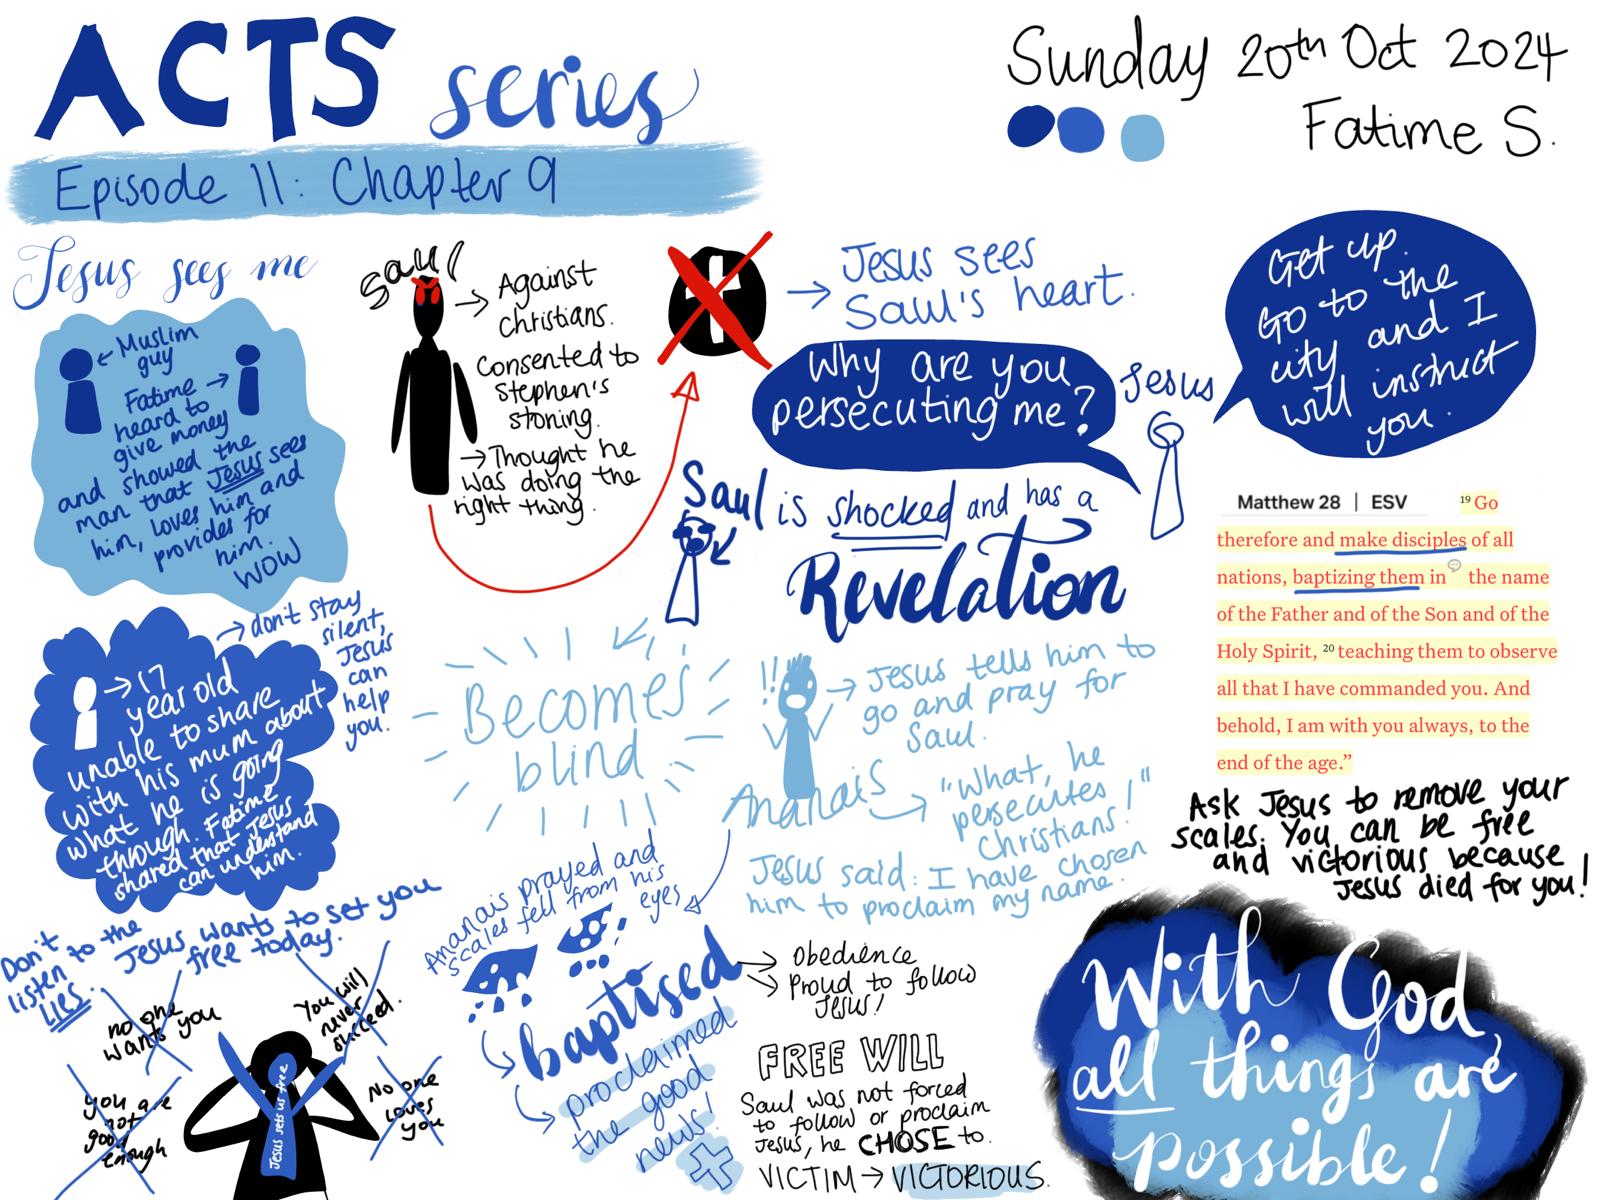 ACTS series
Episode 11: Chapter 9
Sunday 20th Oct 2024
Fatime S.
Jesus sees me
← Muslim
guy
Fatime →
heard to
give money
and showed the
man that Jesus sees
him, loves him and
provides for
him.
WOW
→ don't stay
silent,
Jesus
can
help
you.
→ 17
year old
unable to share
with his mum about
what he is going
through. Fatime
shared that Jesus
can understand
him.
Jesus wants to set you
free today.
Don't
listen to the
LIES.
no one
wants you
You will
never
succeed.
you are
not
good
enough
No one
loves
you
Jesus sets us free
Saul
→ Against
Christians.
Consented to
Stephen's
stoning.
→ Thought he
was doing the
right thing.
→ Jesus sees
Saul's heart.
Why are you
persecuting me?
Jesus
Get up.
Go to the
city and I
will instruct
you.
Saul is shocked and has a
Revelation
Becomes
blind
!!
→ Jesus tells him to
go and pray for
Saul.
Ananais → "What, he
persecutes
Christians!"
Jesus said: I have chosen
him to proclaim my name.
Ananais prayed and
scales fell from his
eyes
baptised
→ Obedience
→ Proud to follow
Jesus!
proclaimed
the good
news!
FREE WILL
Saul was not forced
to follow or proclaim
Jesus, he CHOSE to.
VICTIM → VICTORIOUS.
Matthew 28 | ESV
19 Go
therefore and make disciples of all
nations, baptizing them in the name
of the Father and of the Son and of the
Holy Spirit, 20 teaching them to observe
all that I have commanded you. And
behold, I am with you always, to the
end of the age.”
Ask Jesus to remove your
scales. You can be free
and victorious because
Jesus died for you!
With God,
all things are
possible!